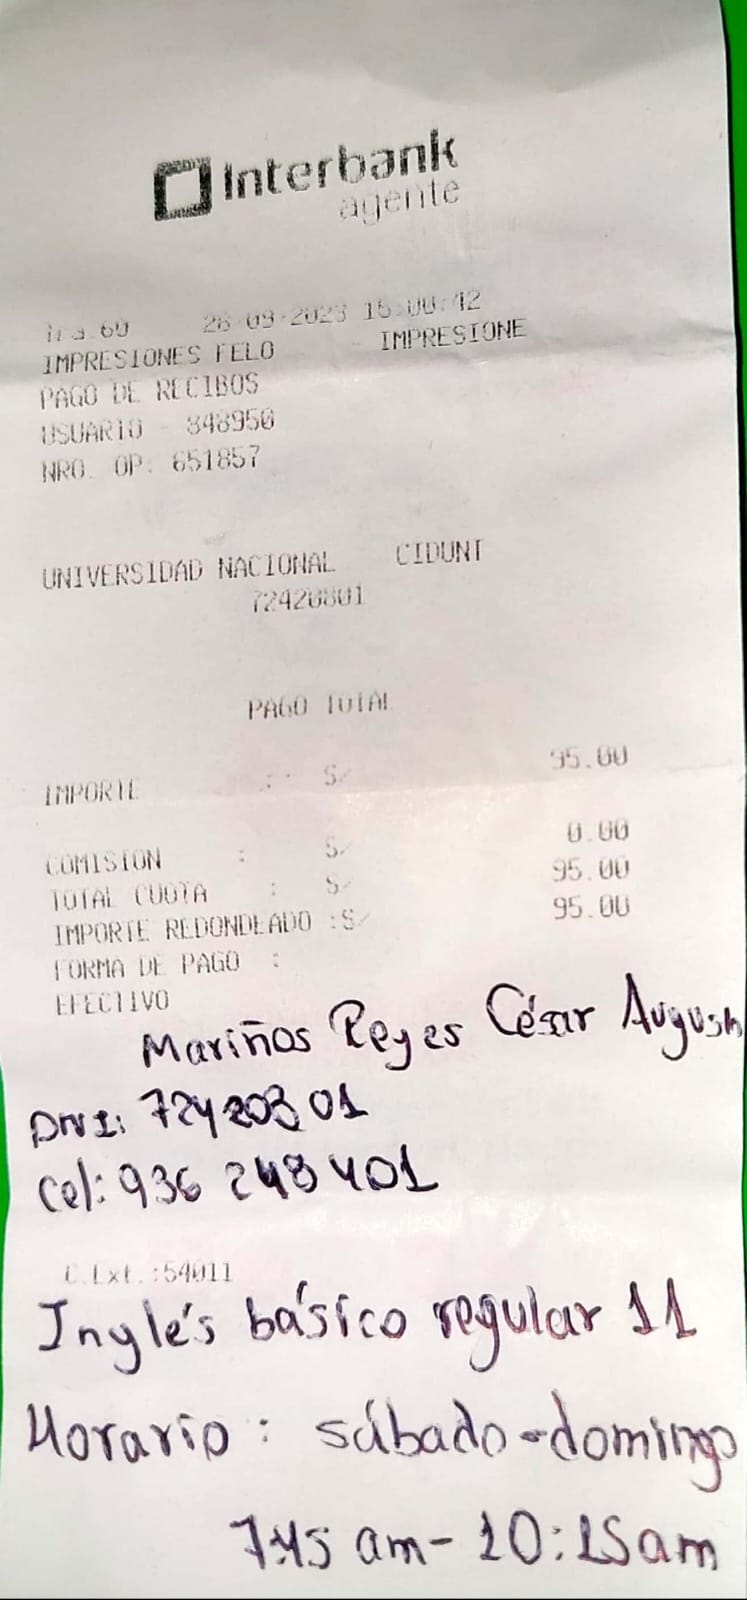 Interbank
agente
28-09-2023 15:00:42
IMPRESIONES FELO IMPRESIONE
PAGO DE RECIBOS
USUARIO - 848950
NRO. OP: 651857
UNIVERSIDAD NACIONAL CIDUNT
72420801
PAGO TOTAL
IMPORTE : S/ 95.00
COMISION : S/ 0.00
TOTAL CUOTA : S/ 95.00
IMPORTE REDONDEADO :S/ 95.00
FORMA DE PAGO :
EFECTIVO
Mariños Reyes César August
DNI: 72420801
Cel: 936 248 401
C.Ext.:54011
Inglés básico regular 11
Horario: sábado-domingo
7:45 am - 10:15am